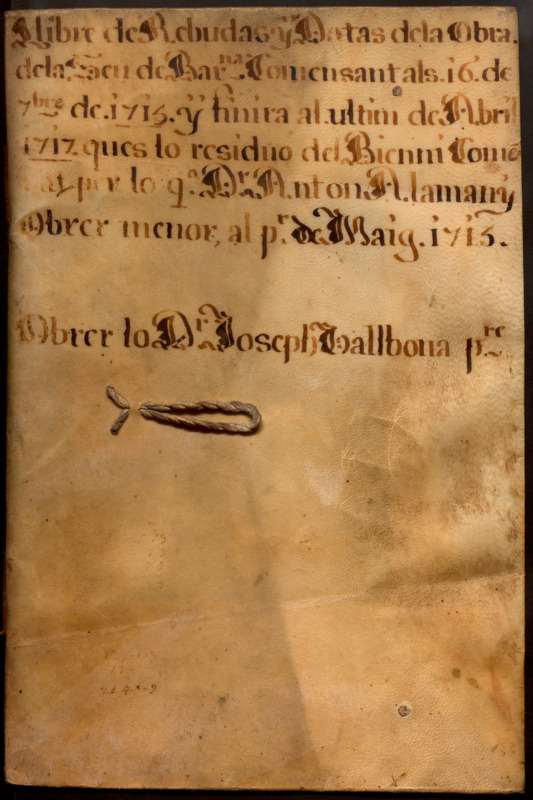 Llibre de Rebudas, y Datas dela Obra.
dela Seu de Bar.na Comensant als. 16. de
7bre de. 1715. y finira al ultim de Abril
1717. ques lo residuo del Bienni Come
sat per lo q.º D.r Anton Alamany
Obrer menor, al p.r de Maig. 1715.
Obrer lo D.r Joseph Vallbona p.re